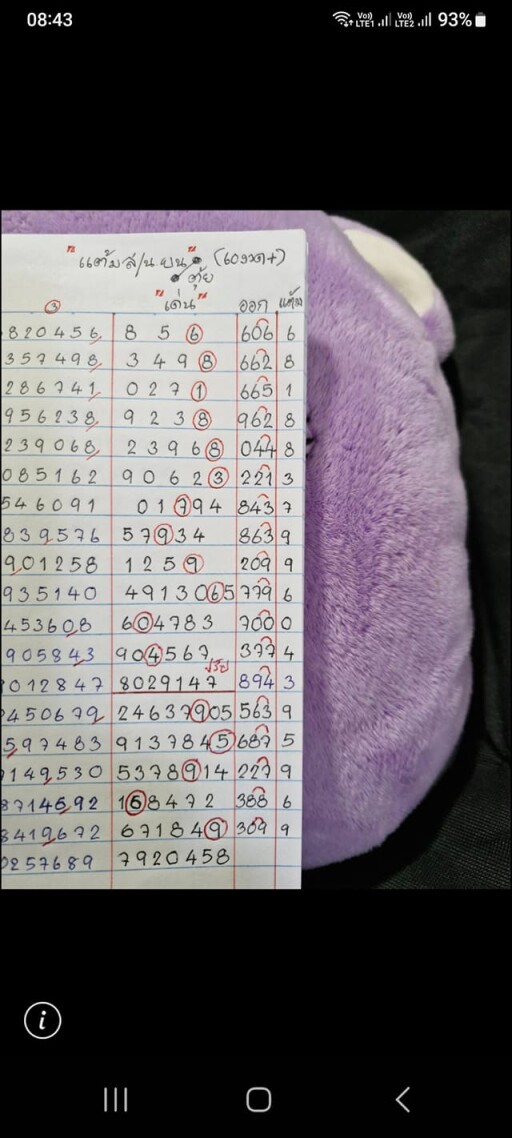 08:43 Vo) LTE1 Vo) LTE2 93%
"แต้มส/น.ยน" (60งวด+)
ตุ้ย
③ "เด่น" ออก แต้ม
820456 8 5 6 606 6
357498 3 4 9 8 662 8
286741 0 2 7 1 665 1
956238 9 2 3 8 962 8
239068 2 3 9 6 8 044 8
085162 9 0 6 2 3 221 3
546091 0 1 7 9 4 843 7
839576 5 7 9 3 4 863 9
901258 1 2 5 9 209 9
935140 4 9 1 3 0 6 5 779 6
453608 6 0 4 7 8 3 700 0
905843 9 0 4 5 6 7 377 4
012847 8 0 2 9 1 4 7 894 3
0450679 2 4 6 3 7 9 0 5 563 9
597483 9 1 3 7 8 4 5 687 5
149530 5 3 7 8 9 1 4 227 9
8714692 1 6 8 4 7 2 388 6
8419672 6 7 1 8 4 9 309 9
0257689 7 9 2 0 4 5 8
i